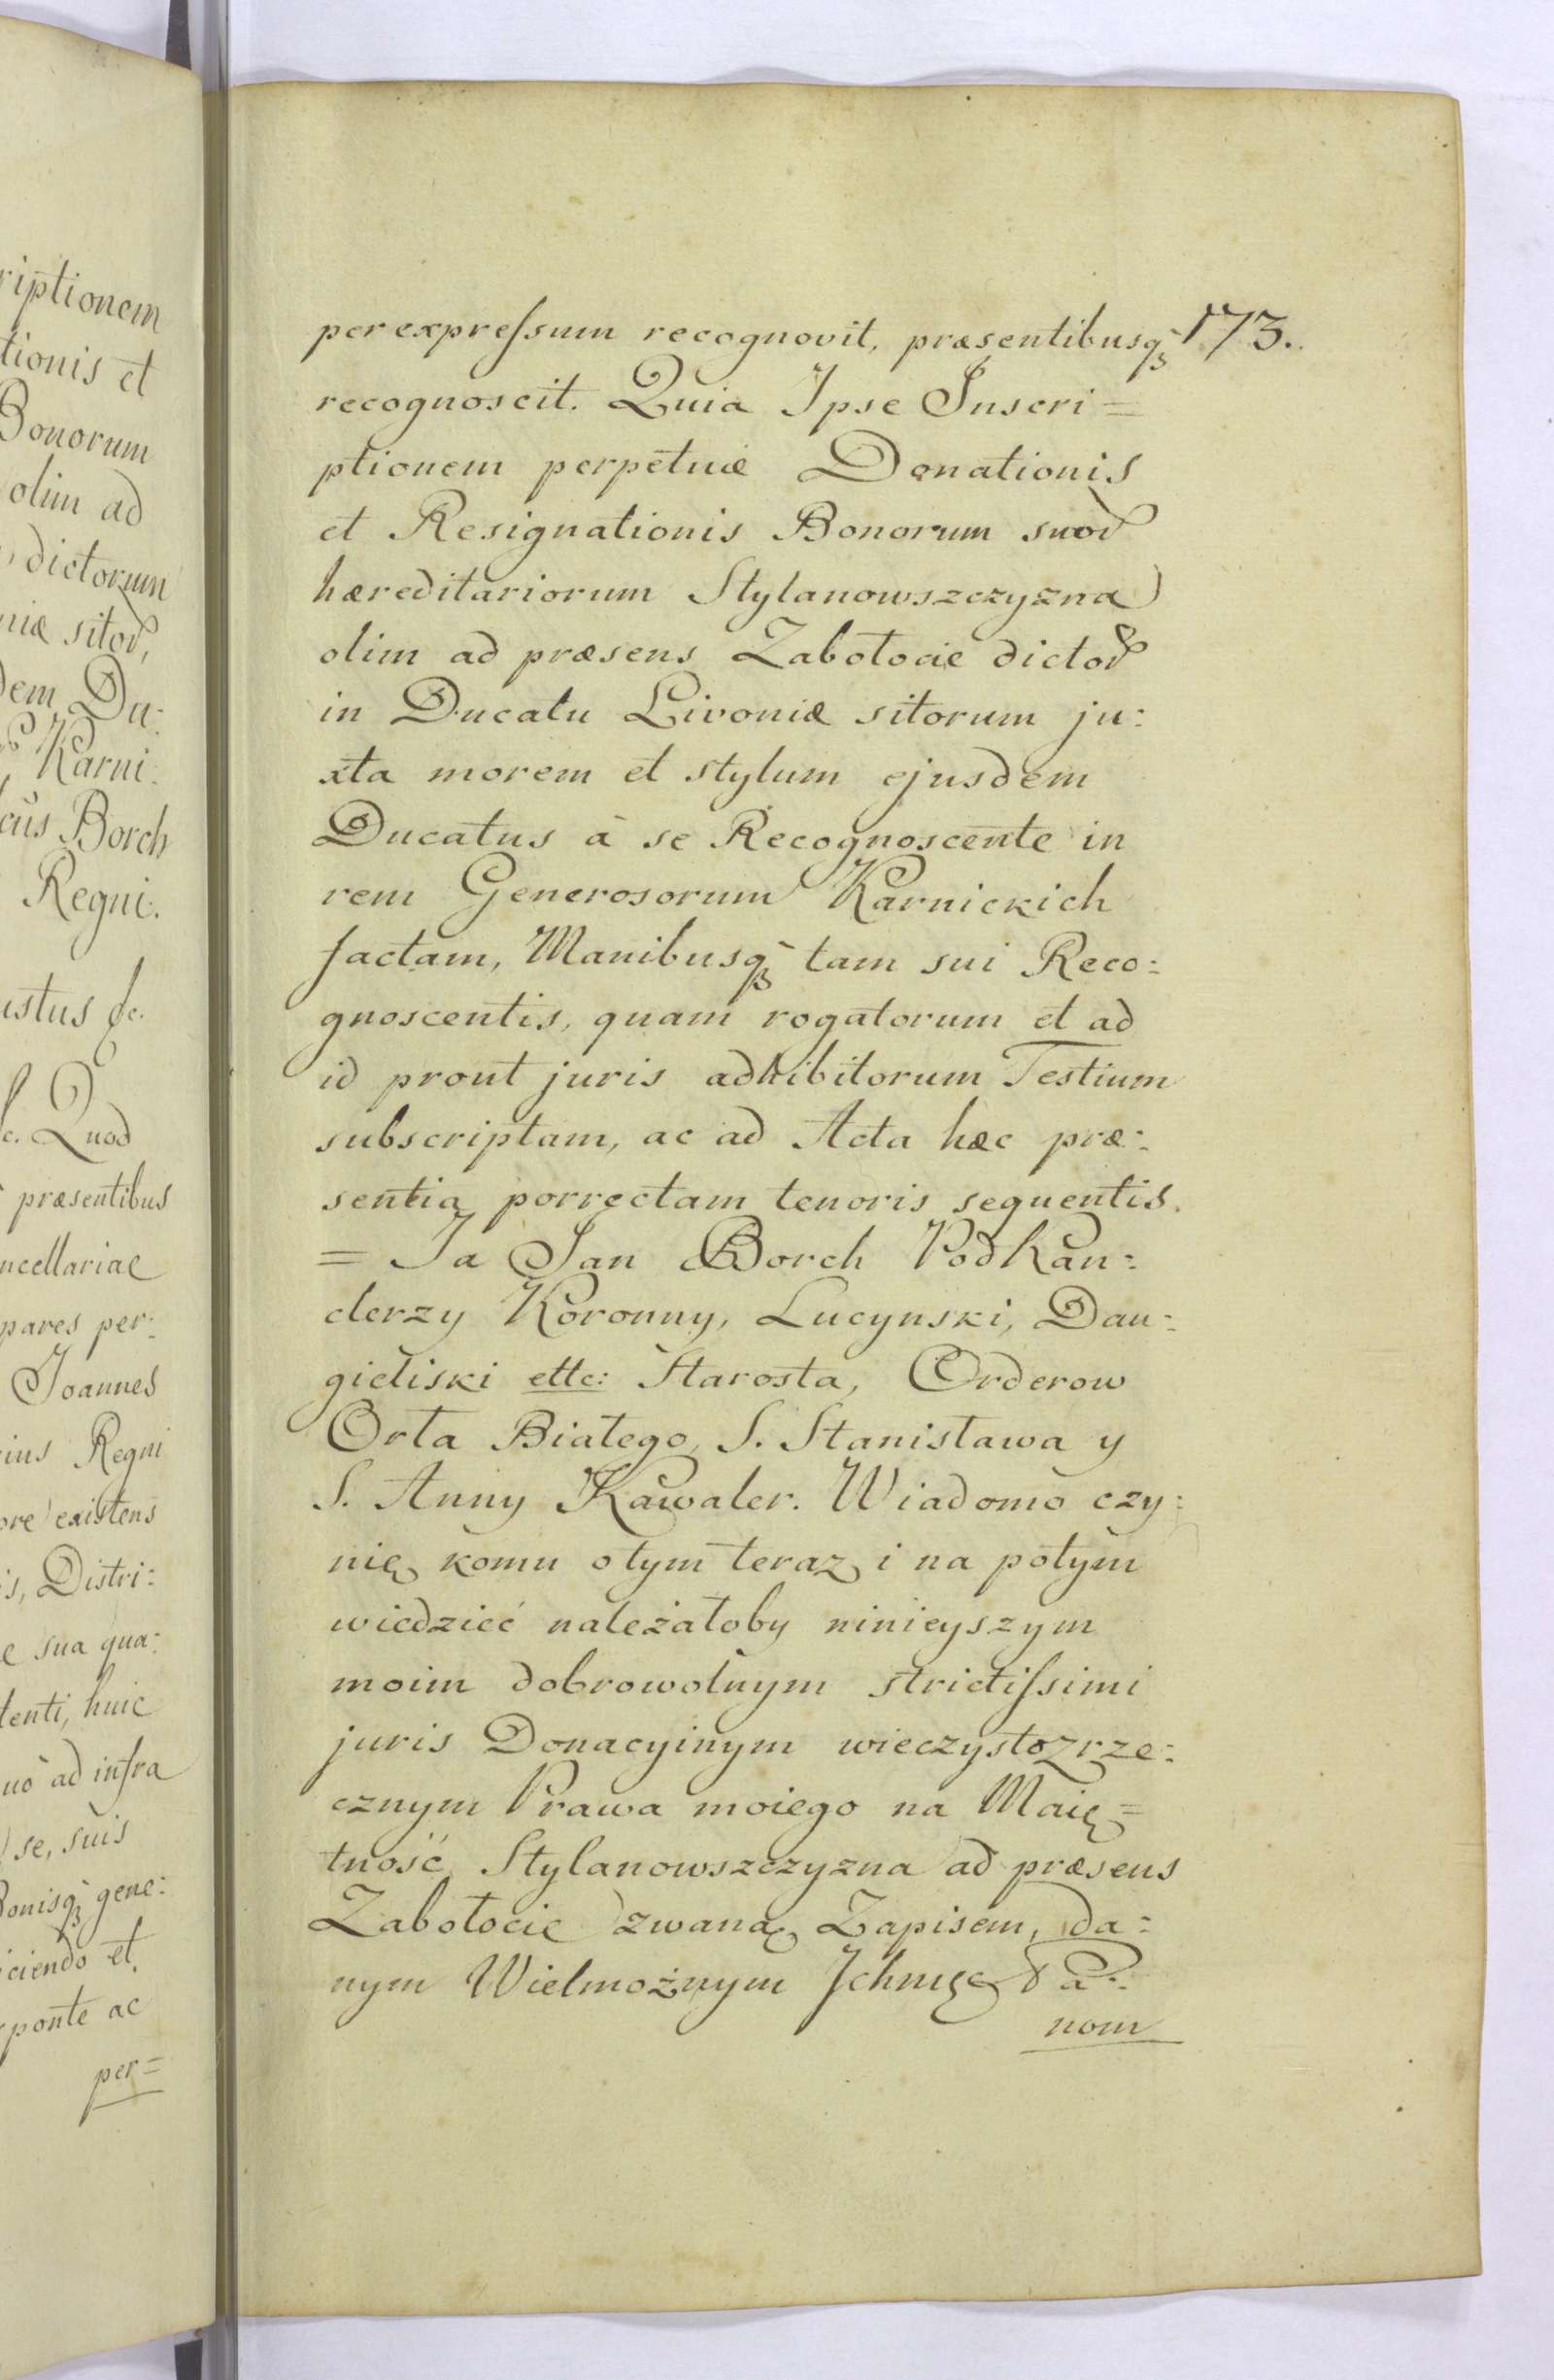 riptionem
tionis et
Bonorum
olim ad
dictorum
niæ sitor,
dem Du:
Karni:
cus Borch
Regni.
ustus &c.
&c. Quod
præsentibus
ncellariae
pares per:
Joannes
rius Regni
ore existens
is, Distri:
e sua qua:
tenti, huic
uò ad infra
se, suis
Bonisq; gene:
iciendo et
sponte ac
per=
perexpreſsum recognovit, præsentibusq; 173.
recognoscit. Quia Ipse Inscri=
ptionem perpetuæ Donationis
et Resignationis Bonorum suor
hæreditariorum Stylanowszczyzna
olim ad præsens Zabołocie dictor
in Ducatu Livoniæ sitorum ju:
xta morem et stylum ejusdem
Ducatus à se Recognoscente in
rem Generosorum Karnickich
factam, Manibusq; tam sui Reco:
gnoscentis, quam rogatorum et ad
id prout juris adhibitorum Testium
subscriptam, ac ad Acta hæc præ:
sentia porrectam tenoris sequentis.
= Ja Jan Borch Podkan:
clerzy Koronny, Lucynski, Dau:
gieliski ettc: Starosta, Orderow
Orła Białego, S. Stanisława y
S. Anny Kawaler. Wiadomo czy:
nię komu o tym teraz i na potym
wiedzieć należałoby ninieyszym
moim dobrowolnym strictiſsimi
juris Donacyinym wieczystozrze:
cznym Prawa moiego na Maię=
tność Stylanowszczyzna ad præsens
Zabołocie zwaną Zapisem, da:
nym Wielmożnym Jchmę Pa:
nom